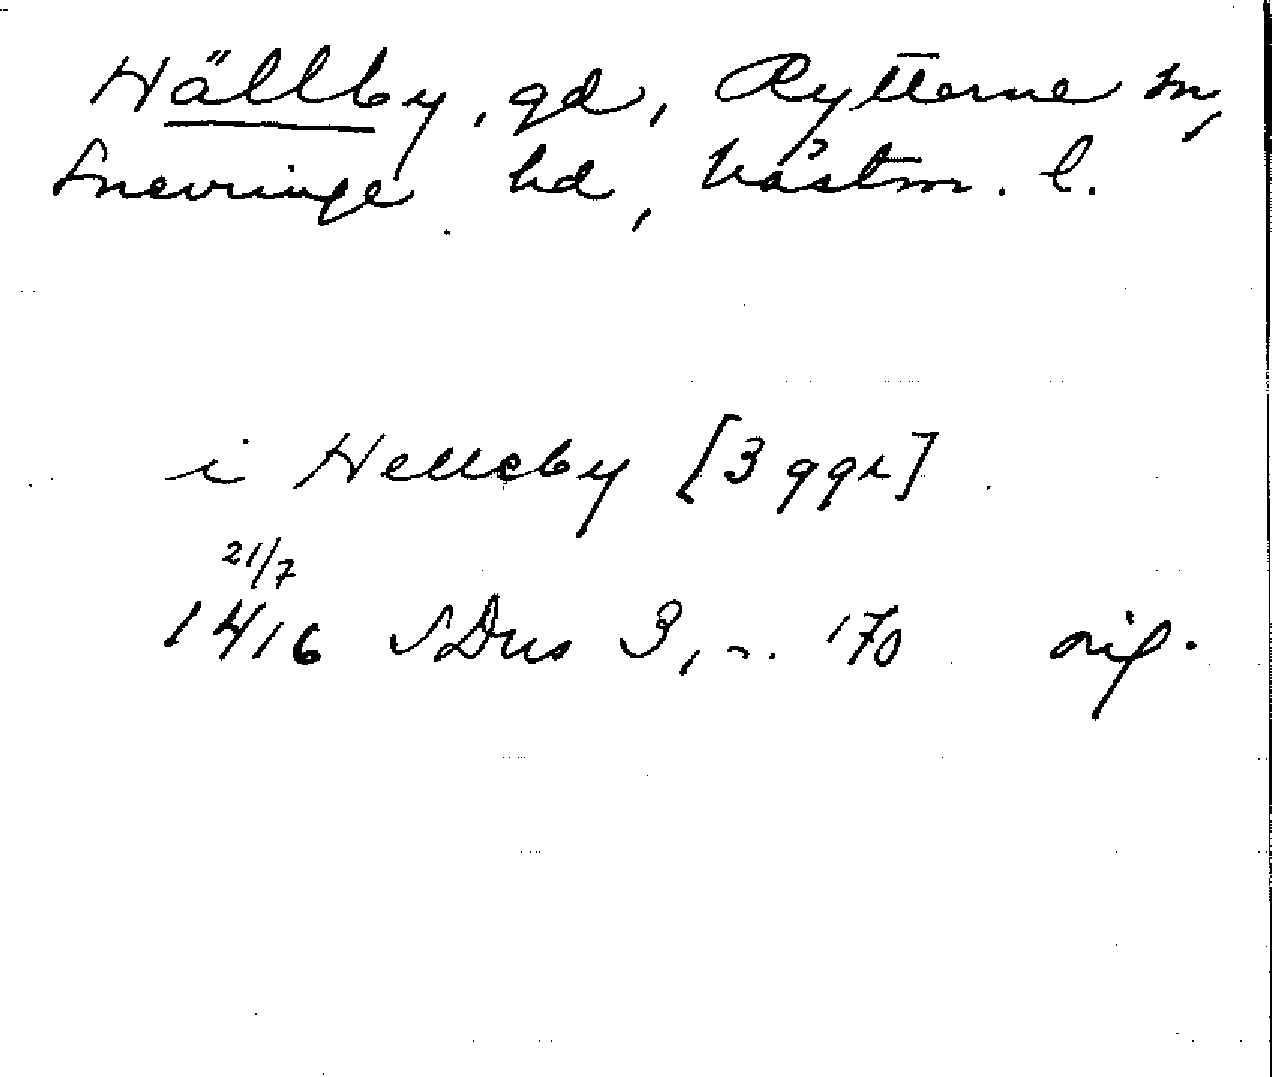 Hällby, gd, Rytterne sn,
Snevringe hd, Västm. l.
i Helleby [3 ggr]
21/7
1416 SDns 3, s. 170 orig.